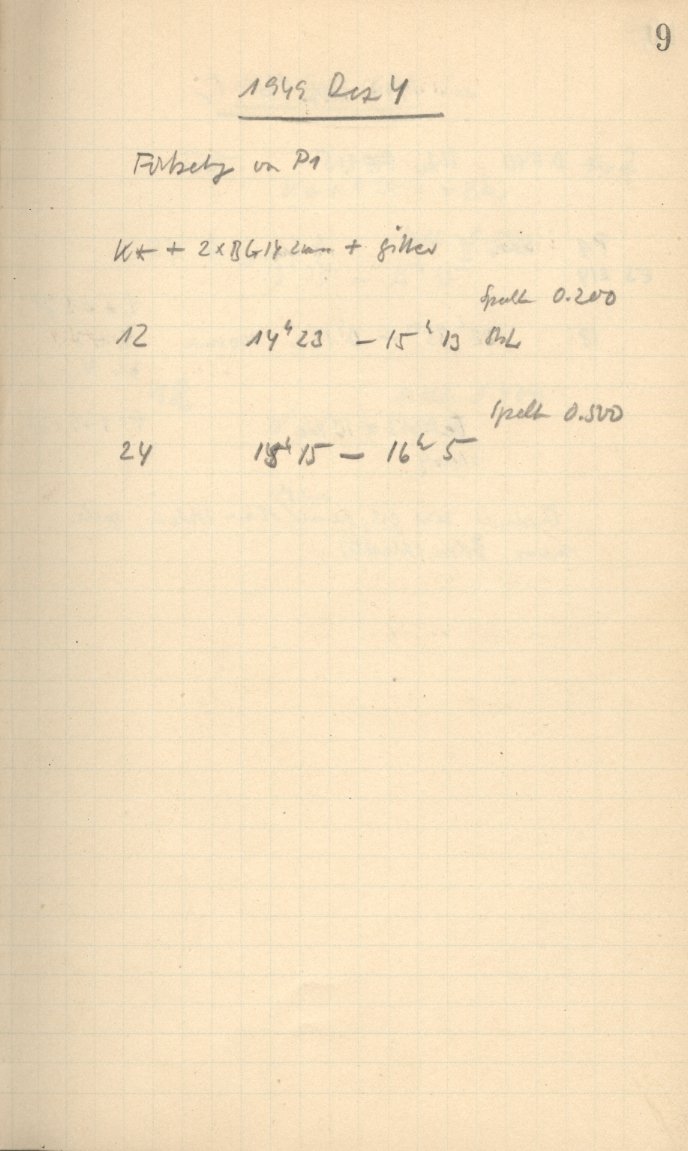 9
1949 Dez 4
Fortsetzg von P1
+ 2xBG14 2mm + gitter
Spalt 0.200
12 14h 23 – 15h 13
Spalt 0.500
24 15h 15 – 16h 5